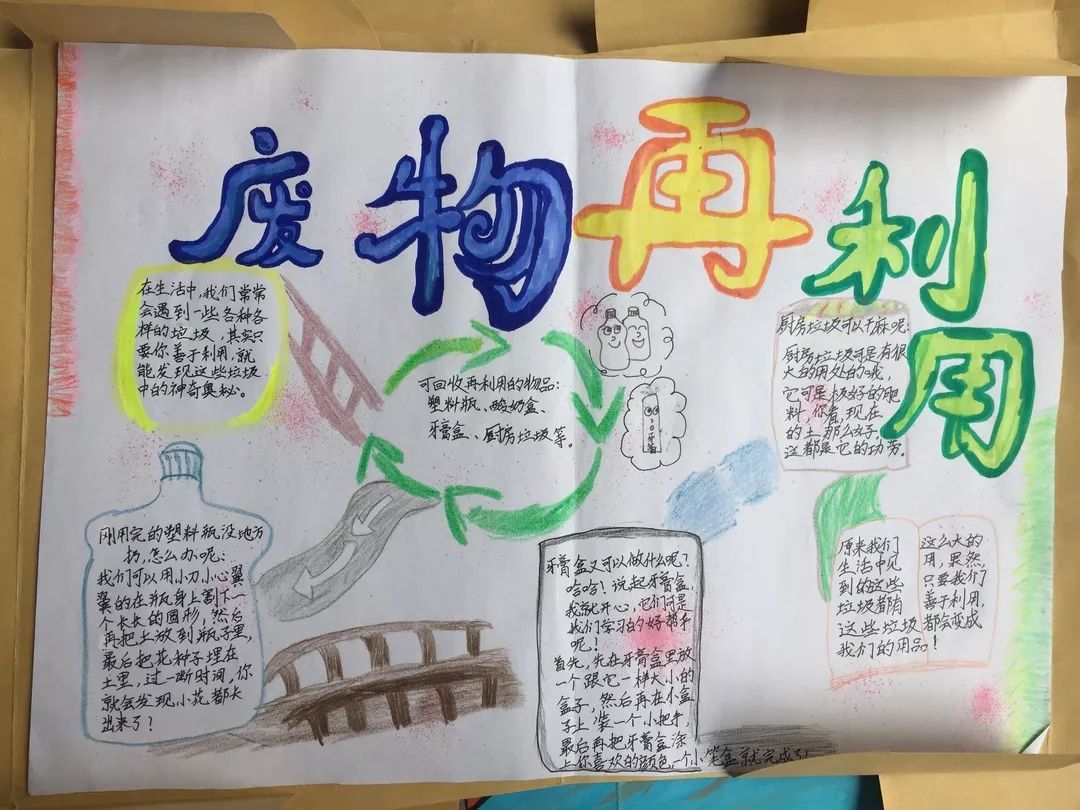 废物再利用
在生活中,我们常常
会遇到一些各种各
样的垃圾,其实只
要你善于利用,就
能发现这些垃圾
中的神奇奥秘。
可回收再利用的物品:
塑料瓶、酸奶盒、
牙膏盒、厨房垃圾等。
厨房垃圾可以干麻呢:
厨房垃圾可是有很
大的用处的哦
它可是极好的肥
料,你看,现在
的土那么好,
这都是它的功劳。
刚用完的塑料瓶没地方
扔,怎么办呢:
我们可以用小刀小心翼
翼的在瓶身上割下一
个长长的圆形,然后
再把土放到瓶子里,
最后把花种子埋在
土里,过一断时间,你
就会发现小花都长
出来了?
牙膏盒又可以做什么呢?
哈哈!说起牙膏盒,
我就开心,它们可是
我们学习的好帮手
呢!
首先,先在牙膏盒里放
一个跟它一样大小的
盒子,然后再在小盒
子上装一个小把手,
最后再把牙膏盒涂
上你喜欢的颜色,一个小笔盒就完成了!
原来我们
生活中见
到的这些
垃圾都有
这些垃圾
我们的用品!
这么大的
用,果然,
只要我们
善于利用,
都会变成